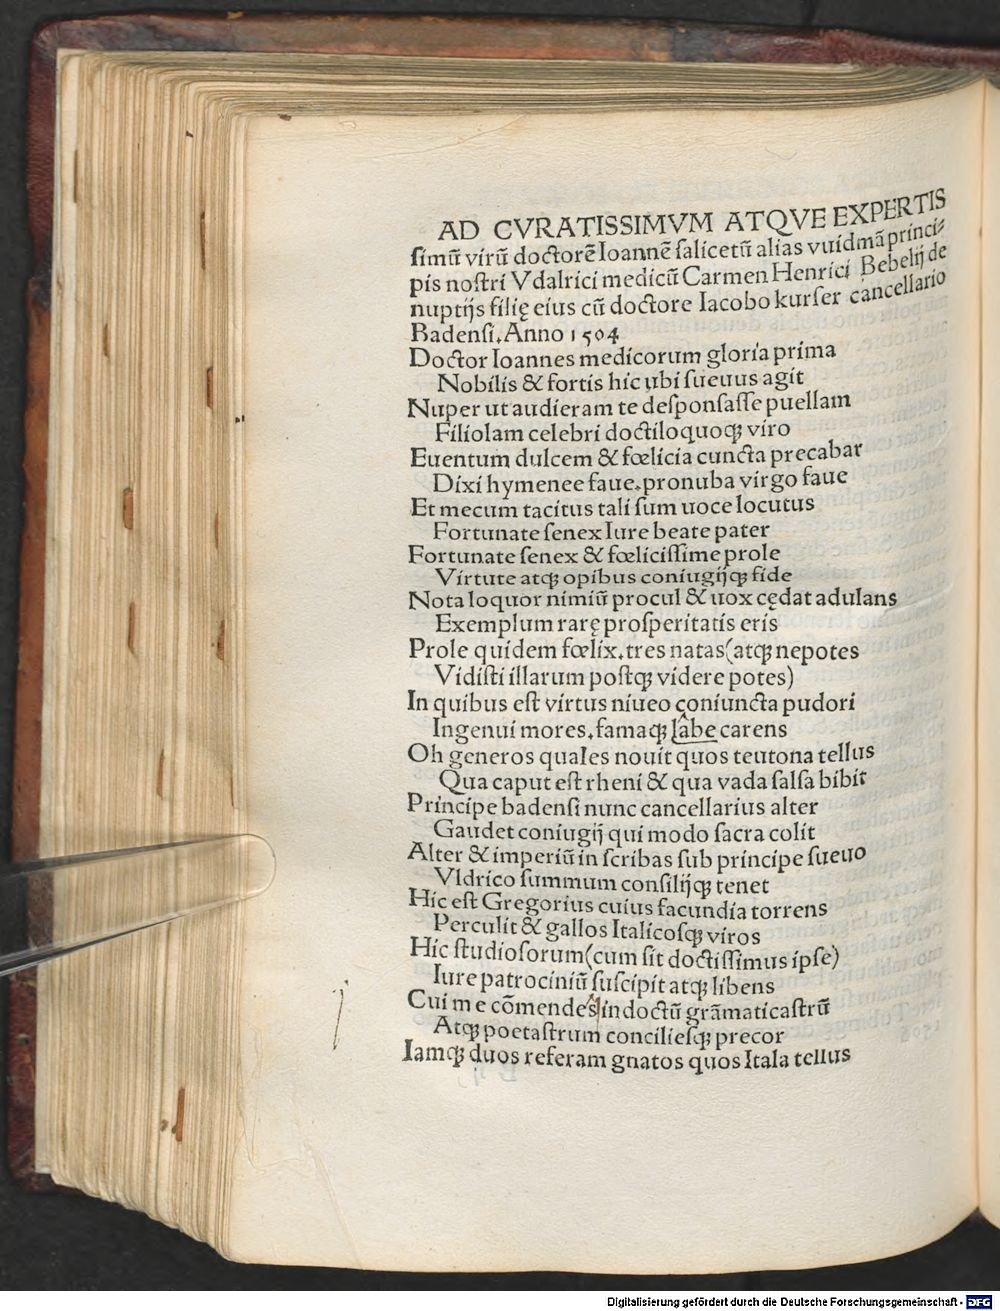 AD CVRATISSIMVM ATQVE EXPERTIS
ſimũ virũ doctorẽ Ioannẽ ſalicetũ alias vuidmã princi⸗
pis noſtri Vdalrici medicũ Carmen Henrici Bebelij de
nuptijs filię eius cũ doctore Iacobo kurſer cancellario
Badenſi. Anno 1504
Doctor Ioannes medicorum gloria prima
Nobilis & fortis hic ubi ſueuus agit
Nuper ut audieram te deſponſaſſe puellam
Filiolam celebri doctiloquoqꝫ viro
Euentum dulcem & fœlicia cuncta precabar
Dixi hymenee faue.pronuba virgo faue
Et mecum tacitus tali ſum uoce locutus
Fortunate ſenex Iure beate pater
Fortunate ſenex & fœliciſſime prole
Virtute atqꝫ opibus coniugijqꝫ fide
Nota loquor nimiũ procul & uox cędat adulans
Exemplum rarę proſperitatis eris
Prole quidem fœlix.tres natas(atqꝫ nepotes
Vidiſti illarum poſtqꝫ videre potes)
In quibus eſt virtus niueo coniuncta pudori
Ingenui mores.famaqꝫ labe carens
Oh generos quales nouit quos teutona tellus
Qua caput eſt rheni & qua vada ſalſa bibit
Principe badenſi nunc cancellarius alter
Gaudet coniugij qui modo ſacra colit
Alter & imperiũ in ſcribas ſub principe ſueuo
Vldrico ſummum conſilijqꝫ tenet
Hic eſt Gregorius cuius facundia torrens
Perculit & gallos Italicoſqꝫ viros
Hic ſtudioſorum(cum ſit doctiſſimus ipſe)
Iure patrociniũ ſuſcipit atqꝫ libens
Cui me cõmendes indoctũ grãmaticaſtrũ
Atqꝫ poetaſtrum concilieſqꝫ precor
Iamqꝫ duos referam gnatos quos Itala tellus
Digitalisierung gefördert durch die Deutsche Forschungsgemeinschaft - DFG